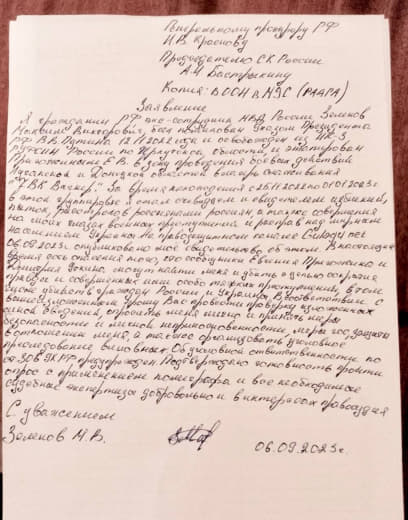 Генеральному прокурору РФ
И.В. Краснову
Председателю СК России
А.И. Бастрыкину
Копия: в ООН в МУС (ГААГА)
Заявление
Я гражданин РФ, экс-сотрудник МВД России Зеленов
Максим Викторович, был помилован Указом Президента
РФ В.В. Путина 12.11.2022 года и освобожден из ИК-3
России по области, и
Пригожиным Е.В. в зону проведения боевых действий
Луганской и Донецкой областей
"ЧВК Вагнер". За время нахождения с 25.11.2022 по 01.01.2023г.
в этой группировке я стал очевидцем и свидетелем
пыток, расстрелов россиянами россиян, а также совершения
на моих глазах военных преступлений и расправ над мирным
населением Украины. На
06.09.2023 опубликовано моё свидетельство об этом. В настоящее
время есть опасения того, что сообщники Евгения Пригожина и
Дмитрия Уткина, могут найти меня и убить с целью сокрытия
правды и совершенных ими особо тяжких преступлений, в том
числе убийств граждан России и Украины. В соответствии с
вышеизложенным прошу Вас провести проверку изложенных
мной сведений, опросить меня лично и принять меры
безопасности и личной неприкосновенности, меры гос. защиты
в отношении меня, а также организовать уголовное
преследование виновных. Об уголовной ответственности по
ст. 306 УК РФ предупрежден. Подтверждаю готовность пройти
опрос с применением полиграфа и все необходимые
судебные экспертизы добровольно и в интересах правосудия
С уважением
Зеленов М.В.
06.09.2023г.